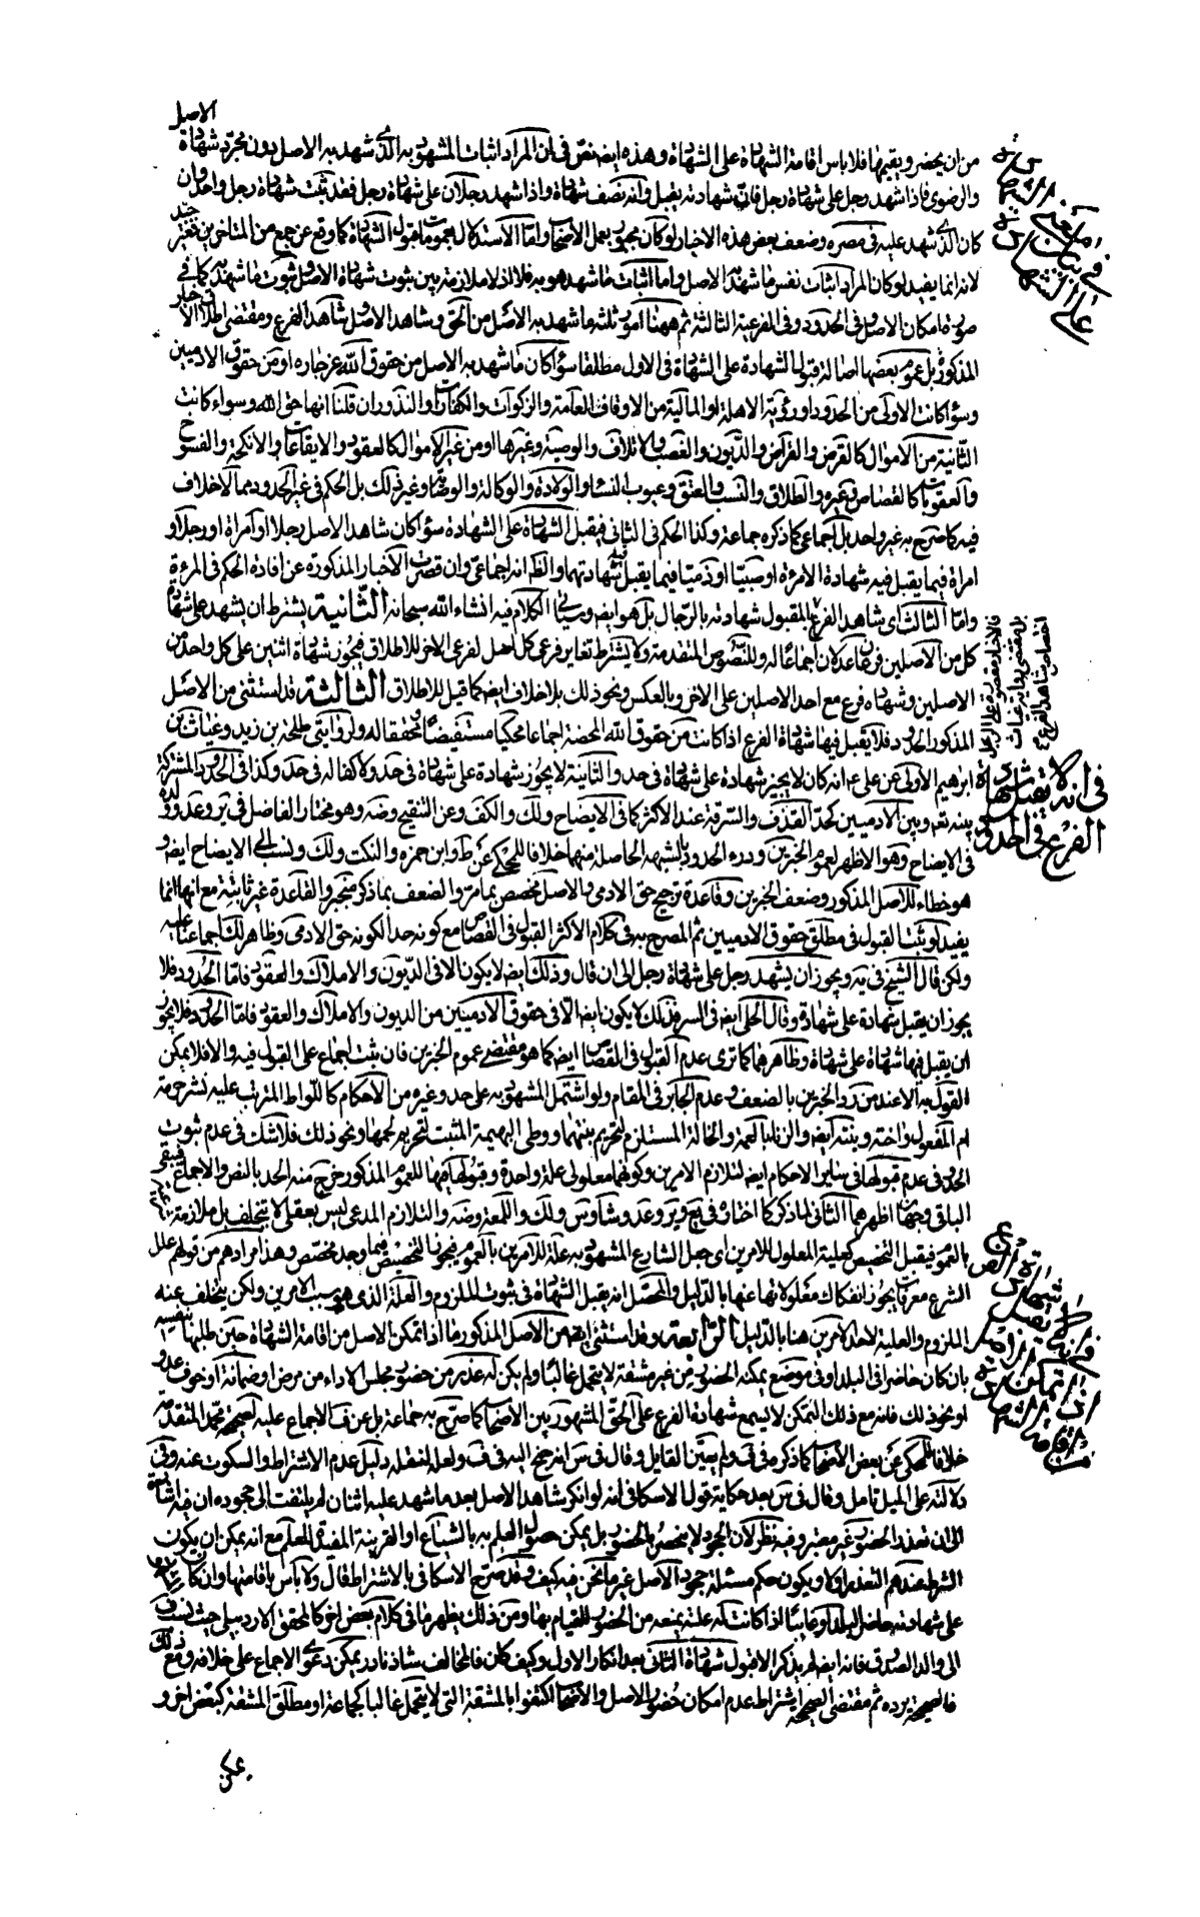 الاصل
من ان يحضر ويقيمها فلا باس اقامة الشهادة على الشهادة وهذه ايضا نص في ان المراد اثبات المشهود به الذي شهد به الاصل دون مجرد شهادة
والرضوي فاذا شهد رجل على شهادة رجل فان شهادته يقبل وانه نصف شهادة واذا شهد رجلان على شهادة رجل فقد ثبت شهادة رجل واحد وان
كان الذي شهد عليه في مصره وضعف بعض هذه الاخبار لو كان مجبور بعمل الاصحاب واما الاستدلال بعمومات قبول الشهادة كما وقع عن جمع من المتاخرين فغير جيد
لانه انما يفيد لو كان المراد اثبات نفس ما شهد به الاصل واما اثبات ما شهد هو به فلا اذ لا ملازمة بين ثبوت شهادة الاصل وثبوت ما شهد به كما في
صورة امكان الاصل وفي الحدود وفي الفرعية الثالثة ثم ههنا امور ثلثة ما شهد به الاصل من الحق وشاهد الاصل وشاهد الفرع ومقتضى اطلاق الاخبار
المذكورة بل عموم بعضها اصالة قبول الشهادة على الشهادة في الاول مطلقا سواء كان ما شهد به الاصل من حقوق الله عز جاره او من حقوق الادميين
وسواء كانت الاولى من الحدود او رؤية الاهلة او المالية من الاوقاف العامة والزكوات والكفارات والنذور ان قلنا انها حق الله وسواء كانت
الثانية من الاموال كالقرض والقراض والديون والغصب والاتلاف والوصية وغيرها او من غير الاموال كالعقود والايقاعات والانكحة والفسوخ
والعقوبات كالقصاص وغيره والطلاق والنسب والعتق وعيوب النساء والولادة والوكالة والوصاية وغير ذلك بل الحكم في غير الحدود مما لا خلاف
فيه كما صرح به غير واحد بل اجماعي كما ذكره جماعة وكذا الحكم في الثاني فيقبل الشهادة على الشهادة سواء كان شاهد الاصل رجلا او امراة او رجلا و
امراة فيما يقبل فيه شهادة الامرءة او صبيا او ذميا فيما يقبل فيه شهادتهما والظاهر انه اجماعي وان قصرت الاخبار المذكورة عن افادة الحكم في المرءة
واما الثالث اي شاهد الفرع فالمقبول شهادته بالرجال بل هو ايضا وسياتي الكلام فيه انشاء الله سبحانه الثانية يشترط ان يشهد على شهادة
كل من الاصلين فرعان عدلان اجماعا له وللنصوص المتقدمة ولا يشترط تغاير فرعي كل اصل لفرعي الاخر للاطلاق فيجوز شهادة اثنين على كل واحد من
الاصلين وشهادة فرع مع احد الاصلين على الاخر وبالعكس ونحو ذلك بلا خلاف ايضا كما قيل للاطلاق الثالثة قد استثنى من الاصل
المذكور الحدود فلا يقبل فيها شهادة الفرع اذا كانت من حقوق الله المحضة اجماعا محكيا مستفيضا ومحققا له ولروايتي طلحة بن زيد وغياث بن
ابرهيم الاولى عن علي ع انه كان لا يجيز شهادة على شهادة في حد والثانية لا يجوز شهادة على شهادة في حد ولا كفالة في حد وكذا في الحدود المشتركة
بينه تعه وبين الادميين كحد القذف والسرقة عند الاكثر كما في الايضاح ولك والكف وعن التنقيح وضه وهو مختار الفاضل في ير وعد وولده
في الايضاح وهو الاظهر لعموم الخبرين ودرء الحدود بالشبهة الحاصلة منهما خلافا للمحكي عن ط وابن حمزه والنكت ولك ونسب الى الايضاح ايضا و
هو خطاء للاصل المذكور وضعف الخبرين وقاعدة ترجيح حق الادمي والاصل مخصص بما مر والضعف بما ذكر منجبر والقاعدة غير ثابتة مع انها انما
يفيد لو ثبت القبول في مطلق حقوق الادميين ثم المصرح به في كلام الاكثر القبول في القصاص مع كونه حدا لكونه حق الادمي وظاهر لك اجماعنا عليه
ولكن قال الشيخ في يه ويجوز ان يشهد رجل على شهادة رجل الى ان قال وذلك ايضا لا يكون الا في الديون والاملاك والعقود فاما الحدود فلا
يجوز ان يقبل شهادة على شهادة وقال الحلي ايضا في السرائر وذلك لا يكون ايضا الا في حقوق الادميين من الديون والاملاك والعقود فاما الحدود فلا يجوز
ان يقبل فيها شهادة على شهادة وظاهرهما كما ترى عدم القبول في القصاص ايضا كما هو مقتضى عموم الخبرين فان ثبت اجماع على القبول فيه والا فلا يمكن
القول به الا عند من رد الخبرين بالضعف وعدم الجابر في المقام ولو اشتمل المشهود به على حد وغيره من الاحكام كاللواط المترتب عليه نشر حرمة
ام المفعول واخته وبنته ايضا والزنا بالعمة والخالة المستلزم لتحريم بنتهما ووطي البهيمة المثبت لتحريم لحمها ونحو ذلك فلا شك في عدم ثبوت
الحد وفي عدم قبولها في ساير الاحكام ايضا لتلازم الامرين وكونهما معلولي علة واحدة وقبولها فيها للعموم المذكور خرج منه الحد بالنص والاجماع فيبقى
الباقي وجهان اظهرهما الثاني لما ذكر كما اختاره في يع وير وعد وشاوس ولك واللمعة وضه والتلازم المدعى ليس بعقلي لا يتخلف بل ملازمة
بالعموم فيقبل التخصيص كعلية المعلول للامرين اي جعل الشارع المشهود به علة للامرين بالعموم فيجوز التخصيص فيما وجد مخصص وهذا مرادهم من قولهم علل
الشرع معرفات يجوز انفكاك معلولاتها عنها بالدليل والمحصل انه يقبل الشهادة في ثبوت الملزوم والعلة الذي هو سبب الامرين ولكن يتخلف عنه
الملزوم والعلية لاحد الامرين هنا بالدليل الرابعة وقد استثنى ايضا من الاصل المذكور ما اذا تمكن الاصل من اقامة الشهادة حين طلبها بنفسه
بان كان حاضرا في البلد او في موضع يمكنه الحضور من غير مشقة لا يتحمل غالبا ولم يكن له عذر من حضور مجلس الاداء من مرض او ضمانة او خوف عدو
او نحو ذلك فانه مع ذلك التمكن لا يسمع شهادة الفرع على الحق المشهور بين الاصحاب كما صرح به جماعة بل عن ف الاجماع عليه لصحيحة محمد المتقدمة
خلافا للمحكي عن بعض الاصحاب كما ذكره في ف ولم يعين القايل وقال في س انه جنح اليه في ف ولعله لنقله دليل عدم الاشتراط والسكوت عنه وفي
دلالته على الميل تامل وقال في س بعد حكاية قول الاسكافي انه لو انكر شاهد الاصل بعد ما شهد عليه اثنان لم يلتفت الى جحوده ان فيه اشارة
الى ان تعذر الحضور غير معتبر وفيه نظر لان الجحود لا ينحصر بالحضور بل يمكن حصول العلم به بالشياع او القرينة المفيدة للعلم مع انه يمكن ان يكون
الشرط عندهم التعذر اولا ويكون حكم مسئلة جحود الاصل غير ما نحن فيه كيف وقد صرح الاسكافي بالاشتراط فقال ولا باس باقامتها وان كان
على شهادته حاضر البلد او غائبا اذا كانت له علة يمنعه من الحضور للقيام بها ومن ذلك يظهر ما في كلام بعض اخر كالمحقق الاردبيلي حيث نسب ف
الى والد الصدوق فانه ايضا لم يذكر الا قبول شهادة الثاني بعد انكار الاول وكيف كان فالمخالف شاذ نادر يمكن دعوى الاجماع على خلافه ومع ذلك
فالصحيحة يرده ثم مقتضى الصحيحة اشتراط عدم امكان حضور الاصل والاصحاب اكتفوا بالمشقة التي لا يتحمل غالبا كجماعة او مطلق المشقة كبعض اخر و
يمكن
فالاخبار مقصورة على الرجل
بل مقتضى رواية غياث
اختصاص شاهد الفرع
في انه لا تقبل شهادة
الفرع في الحدود
في انه لا يقبل شهادة الفرع
ان تمكن الاصل
من اقامة الشهادة